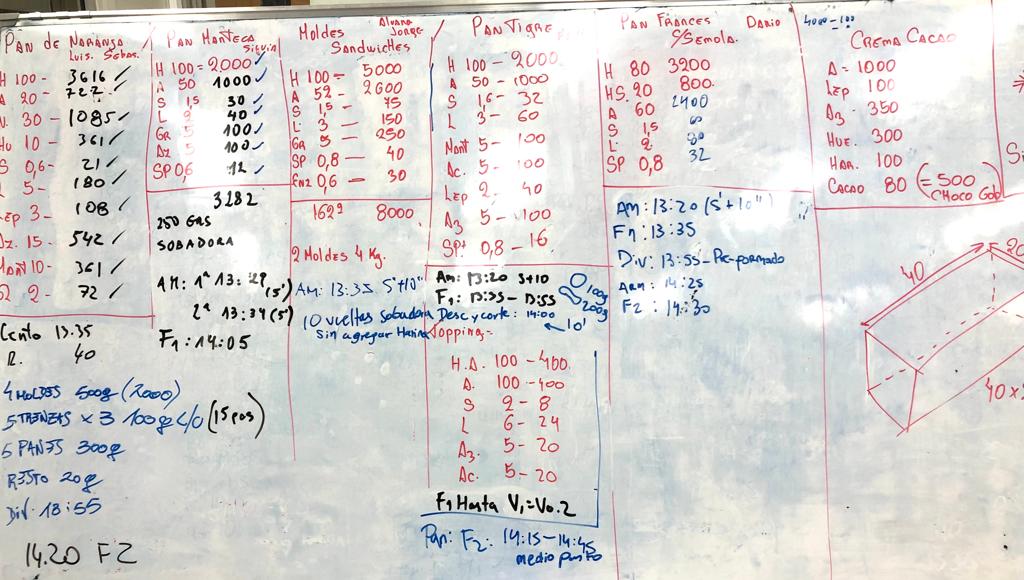 PAN DE NARANJA
LUIS. SEBAS.
H 100 - 3616 ✓
A 20 - 722 ✓
V. 30 - 1085 ✓
HU 10 - 361 ✓
S 0,6 - 21 ✓
L 5 - 180 ✓
LEP 3 - 108 ✓
AZ. 15 - 542 ✓
MANT 10 - 361 ✓
2 - 72 ✓
CENTO 13.35
R. 40
4 MOLDES 500g (2000)
5 TRENZAS x 3 100g C/U (15 pas)
5 PANES 300g
RESTO 20g
DIV. 13:55
14.20 F2
PAN MANTECA
H 100 = 2000 ✓
A 50 1000 ✓
S 1,5 30 ✓
L 2 40 ✓
GR 5 100 ✓
AZ 5 100 ✓
SP 0,6 12 ✓
3282
250 GRS
SOBADORA
AM: 1ª 13:29 (5')
2ª 13:34 (5')
F1: 14:05
MOLDES SANDWICHES
ALVARO
JORGE
H 100 = 5000
A 52 = 2600
S 1,5 - 75
L 3 - 150
GR 5 - 250
SP 0,8 - 40
ENZ 0,6 - 30
162g 8000
2 MOLDES 4 Kg.
AM: 13:35 5'+10''
10 vueltas sobadora
sin agregar Harina
PAN TIGRE
H 100 - 2000
A 50 - 1000
S 1,6 - 32
L 3 - 60
MANT 5 - 100
AC. 5 - 100
LEP 2 - 40
AZ 5 - 100
SP+ 0,8 - 16
AM: 13:20 5+10
F1: 13:35 - 13:55
Desc y corte: 14:00
100g
200g
← 10'
Topping =
H.A. 100 - 400
A. 100 - 400
S 2 - 8
L 6 - 24
AZ. 5 - 20
AC. 5 - 20
F1 Hasta V1 = V0.2
Pan: F2: 14:15 - 14:45
medio punto
PAN FRANCES DARIO
S/SEMOLA.
H 80 3200
HS. 20 800
A 60 2400
S 1,5 60
L 2 80
SP 0,8 32
AM: 13:20 (5'+10'')
F1: 13:35
DIV: 13:55 - Pre-formado
ARM: 14:25
F2: 14:30
4000-100
CREMA CACAO
A = 1000
LEP 100
AZ. 350
HUE. 300
HAR. 100
CACAO 80 (= 500
CHOCO GOB)
40
20
40 x